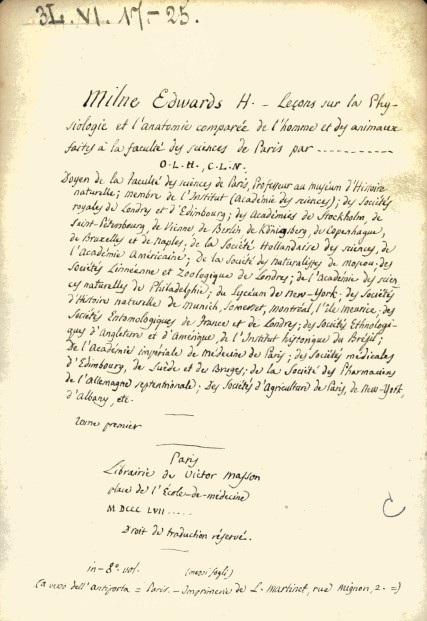 3L. VI. 17-25.
Milne Edwards H. - Leçons sur la Phy-
siologie et l'anatomie comparée de l'homme et des animaux
faites à la faculté des sciences de Paris par ----------
O.L.H., C.L.N.
Doyen de la faculté des sciences de Paris, Professeur au muséum d'Histoire
naturelle; membre de l'Institut (Académie des sciences); des Sociétés
royales de Londres et d'Edimbourg; des Académies de Stockholm, de
Saint-Pétersbourg, de Vienne, de Berlin, de Königsberg, de Copenhague,
de Bruxelles et de Naples; de la Société Hollandaise des sciences, de
l'Académie Américaine; de la Société des naturalistes de Moscou; des
Sociétés Linnéenne et Zoologique de Londres; de l'Académie des scien
ces naturelles de Philadelphie; du Lycéum de New-York; des Sociétés
d'Histoire naturelle de Munich, Somerset, Montréal, l'île Maurice; des
Sociétés Entomologiques de France et de Londres; des Sociétés Ethnologi-
ques d'Angleterre et d'Amérique, de l'Institut historique du Brésil;
De l'Académie impériale de Médecine de Paris; des Sociétés médicales
d'Edimbourg, de Suède et de Bruges; de la Société des Pharmaciens
de l'Allemagne septentrionale; Des Sociétés d'Agriculture de Paris, de New-York,
d'Albany, etc.
Tome premier
Paris
Librairie de Victor Masson
place de l'École-de-médecine
M DCCC LVII .....
Droit de traduction réservé.
in-8° vol. (mezzi fogli)
(a verso dell'antiporta = Paris. - Imprimerie de L. Martinet, rue Mignon, 2. =)